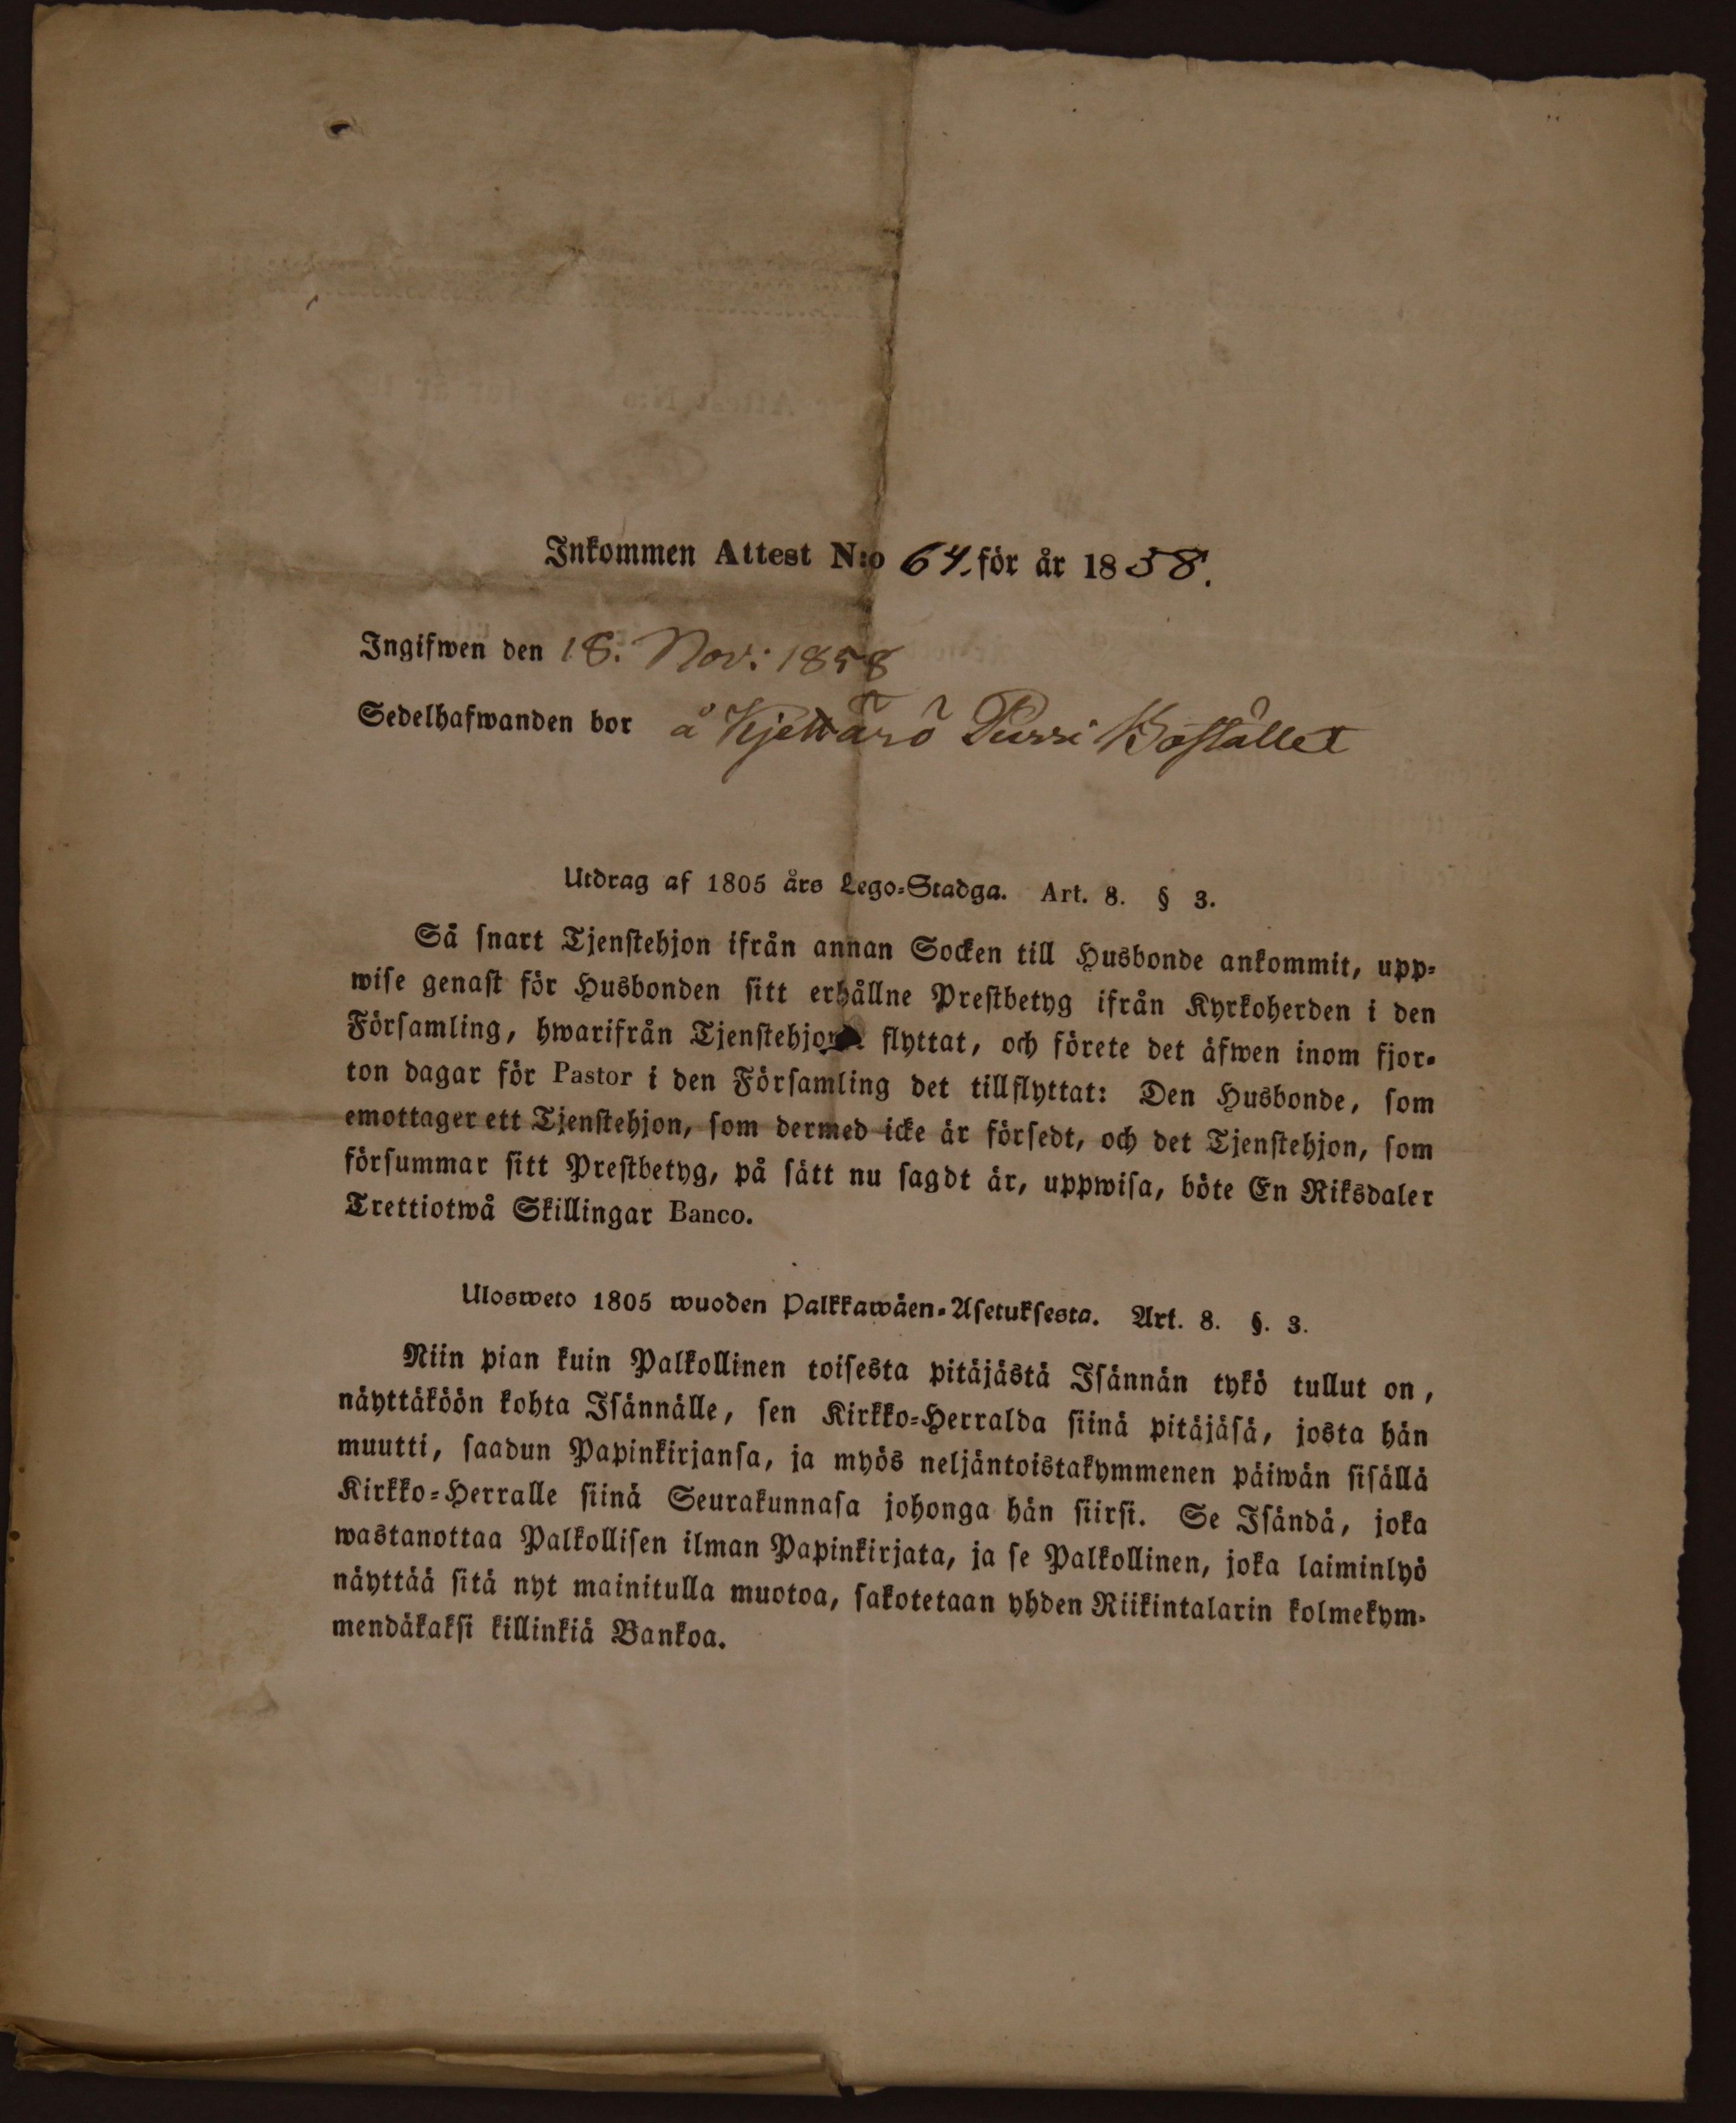 Inkommen Attest N:o 64. för år 1858.
Ingifwen den 18. Nov: 1858
Sedelhafwanden bor å Kjettärö Pursi Bostället
Utdrag af 1805 års Lego-Stadga. Art. 8. § 3.
Så snart Tjenstehjon ifrån annan Socken till Husbonde ankommit, upp-
wise genast för Husbonden sitt erhållne Prestbetyg ifrån Kyrkoherden i den
Församling, hwarifrån Tjenstehjonet flyttat, och förete det äfwen inom fjor-
ton dagar för Pastor i den Församling det tillflyttat: Den Husbonde, som
emottager ett Tjenstehjon, som dermed icke är försedt, och det Tjenstehjon, som
försummar sitt Prestbetyg, på sätt nu sagdt är, uppwisa, böte En Riksdaler
Trettiotwå Skillingar Banco.
Ulosweto 1805 wuoden Palkkawäen-Asetuksesta. Art. 8. §. 3.
Niin pian kuin Palkollinen toisesta pitäjästä Isännän tykö tullut on,
näyttäköön kohta Isännälle, sen Kirkko-Herralda siinä pitäjäsä, josta hän
muutti, saadun Papinkirjansa, ja myös neljäntoistakymmenen päiwän sisällä
Kirkko-Herralle siinä Seurakunnasa johonga hän siirsi. Se Isändä, joka
wastanottaa Palkollisen ilman Papinkirjata, ja se Palkollinen, joka laiminlyö
näyttää sitä nyt mainitulla muotoa, sakotetaan yhden Riikintalarin kolmekym-
mendäkaksi killinkiä Bankoa.